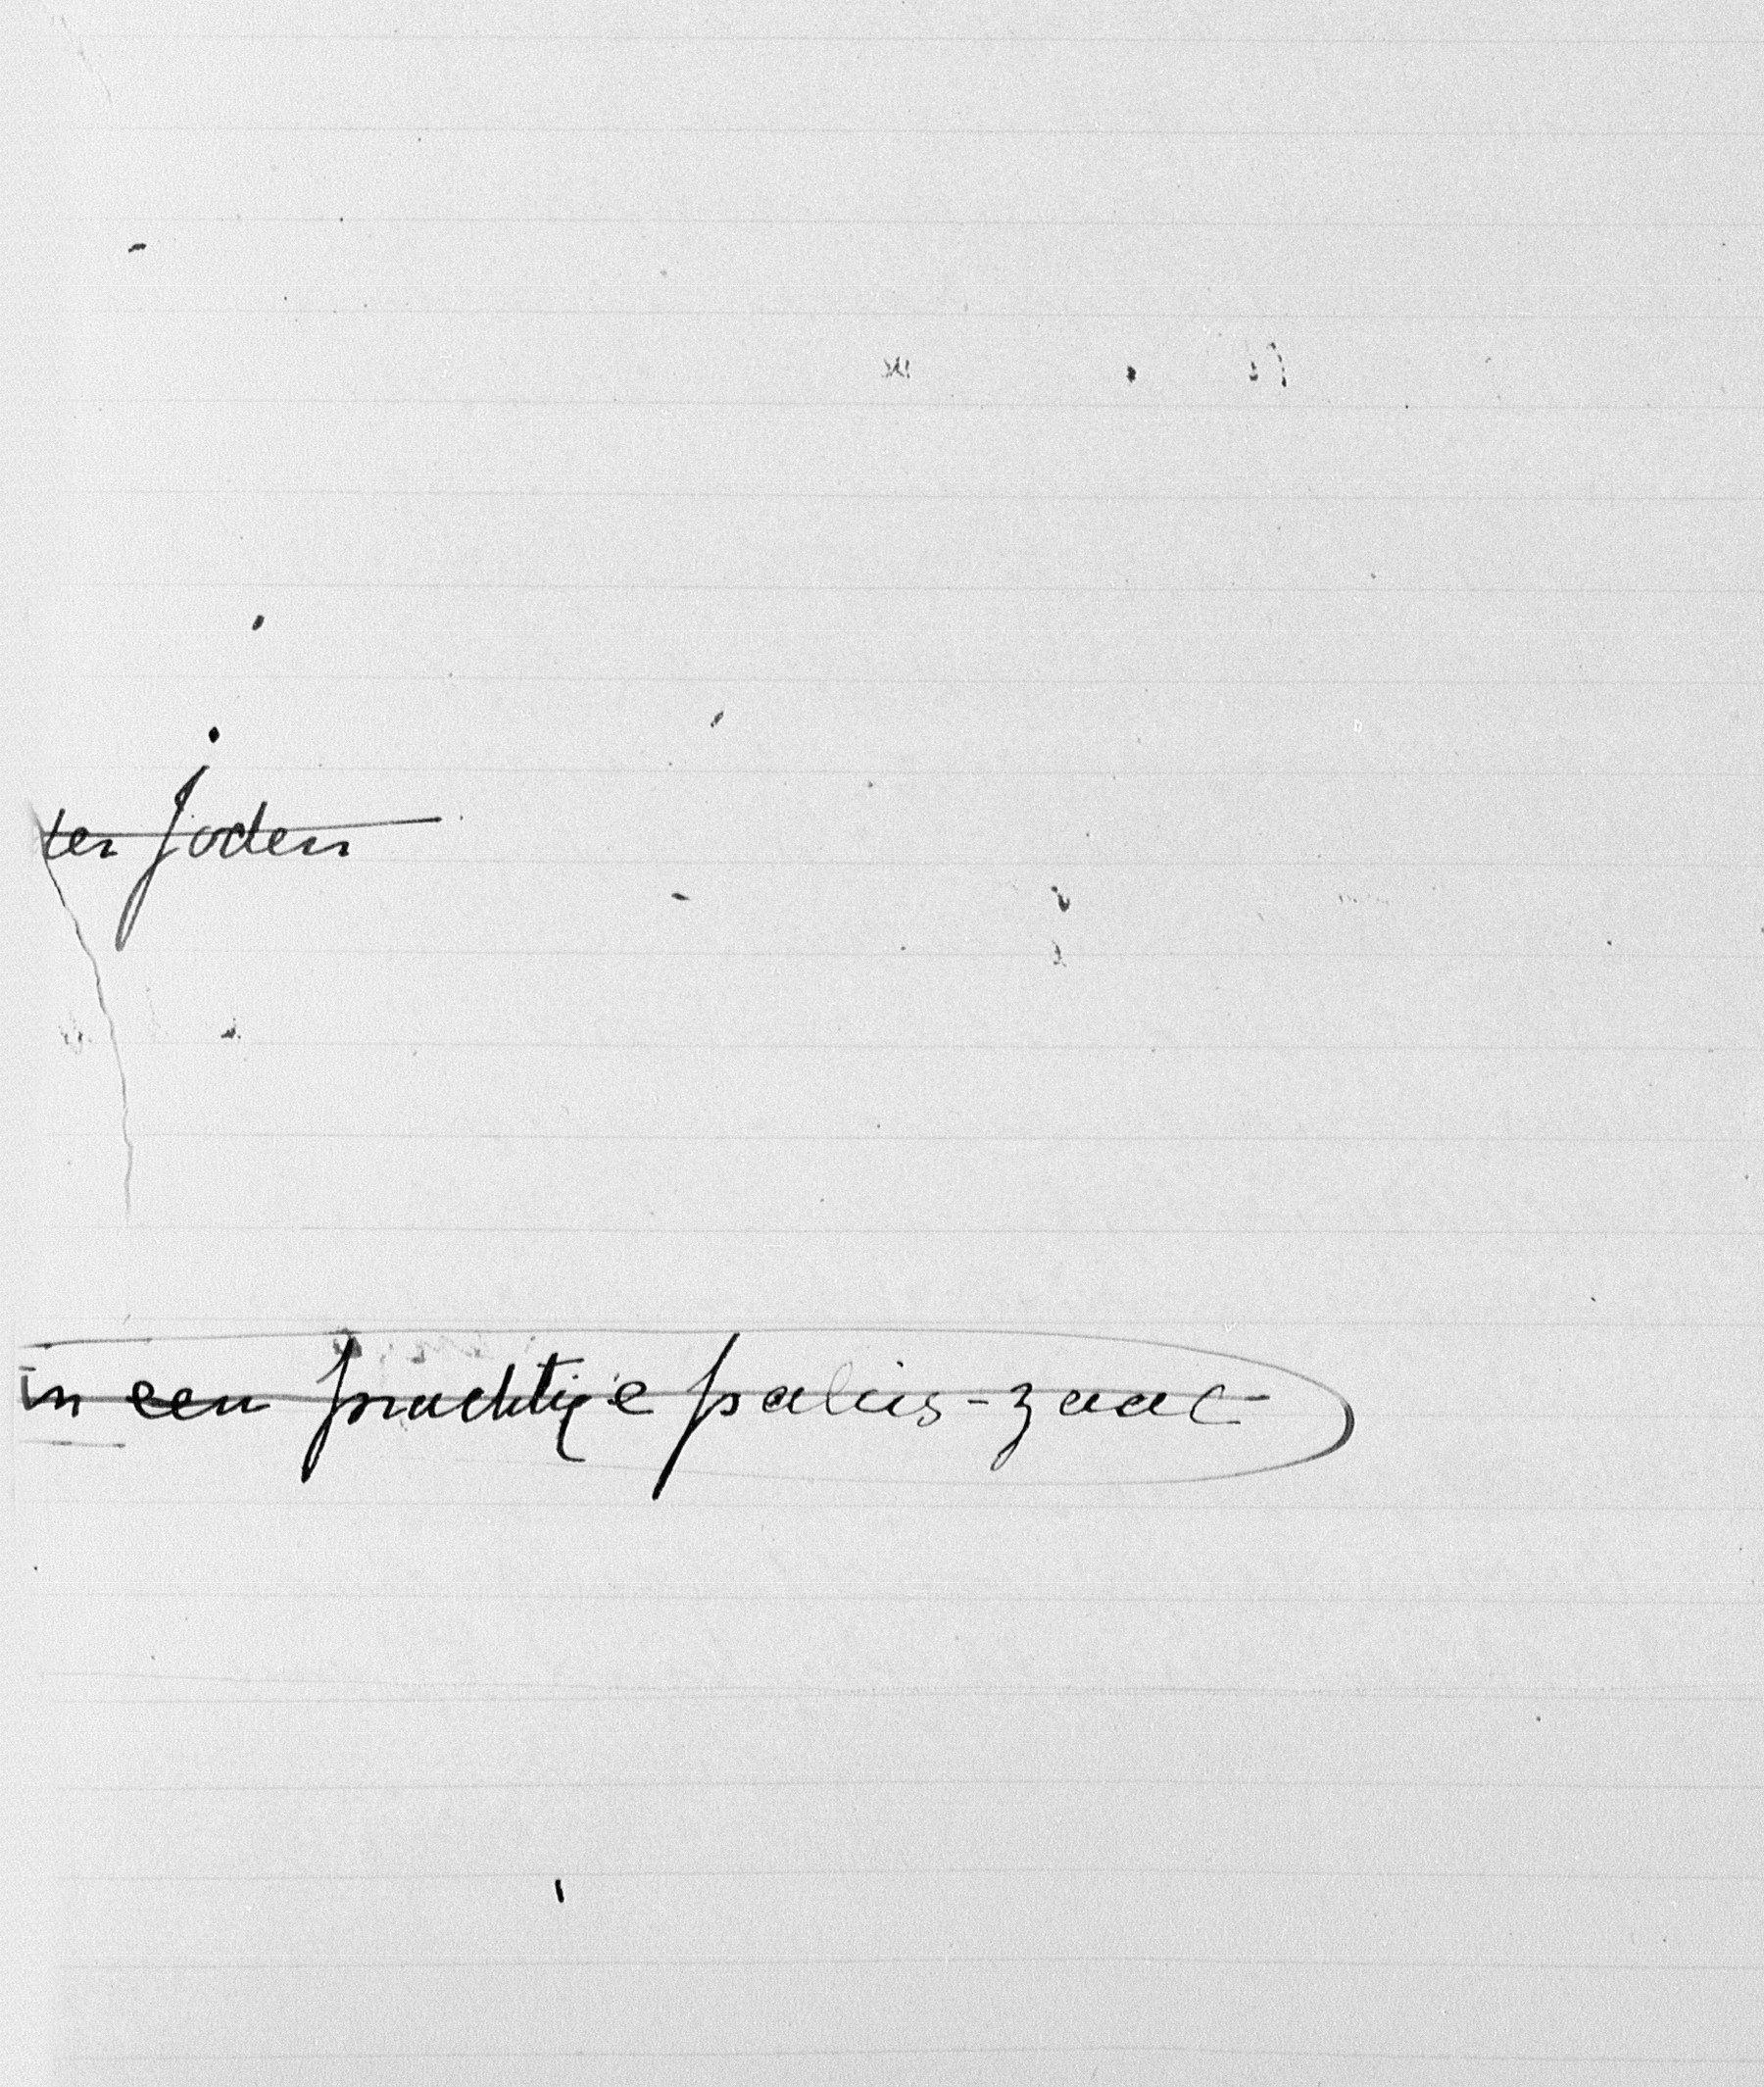 ter joden
in een prachtige paleis-zaal